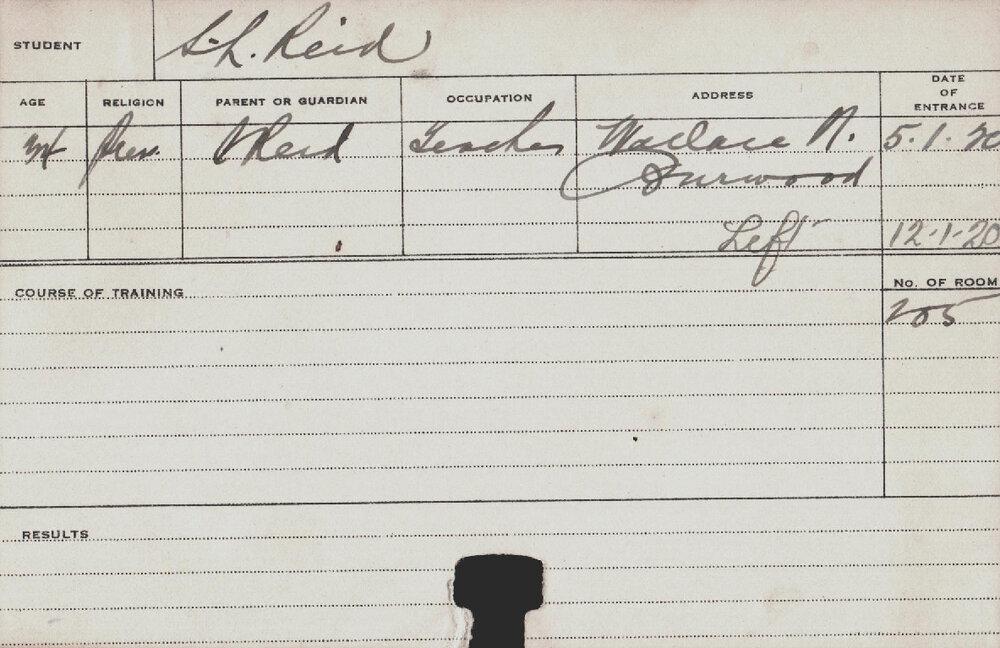 STUDENT S. L. Reid
AGE RELIGION PARENT OR GUARDIAN OCCUPATION ADDRESS DATE OF ENTRANCE
Reid Teacher Wallace 5.1.20
Burwood
Left 12.1.20
COURSE OF TRAINING No. OF ROOM
205
RESULTS